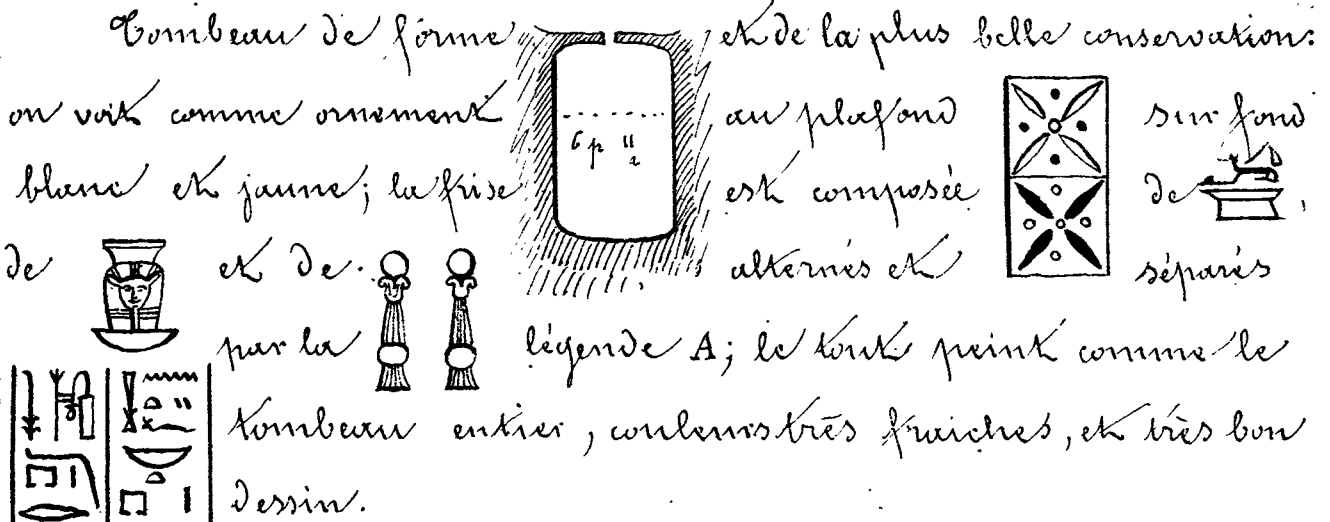 Tombeau de forme et de la plus belle conservation:
on voit comme ornement au plafond sur fond
6 p 11
blanc et jaune; la frise est composée de ,
de et de alternés et séparés
par la légende A; le tout peint comme le
tombeau entier, couleurs très fraiches, et très bon
dessin.